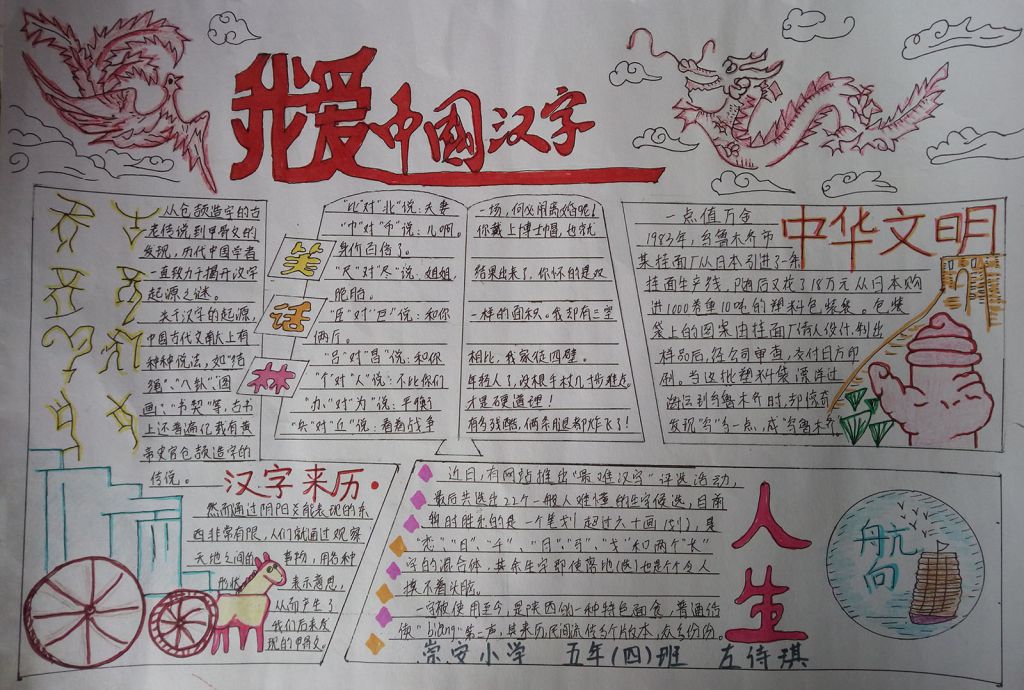 我爱中國汉字
从仓颉造字的古
老传说到甲骨文的
发现，历代中国学者
一直致力于揭开汉字
起源之谜。
关于汉字的起源，
中国古代文献上有
种种说法，如"结
绳"、"八卦"、图
画"、"书契"等，古书
上还普遍亿载有黄
帝史官仓颉造字的
传说。
笑
话
林
"比"对"北"说：夫妻
一场，何必闹离婚呢！
"巾"对"币"说：儿啊。
你戴上博士帽，也就
身价百倍了。
"尺"对"尽"说：姐姐，
结果出来了，你怀的是双
胞胎。
"臣"对"巨"说：和你
一样的面积。我却有三室
两厅。
"吕"对"昌"说：和你
相比，我家徒四壁。
"个"对"人"说：不比你们
年轻人了，没根手杖几寸步难走
"办"对"为"说：平衡
才是硬道理！
"乒"对"丘"说：看看战争
有多残酷，俩条腿都炸飞了！
中华文明
一点值万金
1983年，乌鲁木齐市
某挂面厂从日本引进了一条
挂面生产线，随后又花了18万元从日本购
进1000卷重10吨的塑料包装袋。包装
袋上的图案由挂面厂请人设计，制出
样品后，经公司审查，交付日方印
刷。当这批塑料袋漂洋过
海运到乌鲁木齐时，却惊奇
发现"乌"多一点，成"鸟鲁木齐。
汉字来历
然而通过阴阳爻能表现的东
西非常有限，人们就通过观察
天地之间的事物，用各种
形状表示意思，
从而产生了
我们后来发
现的甲骨文。
近日，有网站推出"最难汉字"评选活动，
最后共选出22个一般人难懂的生字候选，目前
暂时胜出的是一个笔划超过六十画(划)，是
字的混合体，其余生字即使落地(选)也是个个令人
摸不着头脑。
一字被使用至今，是陕西的一种特色面食，普通话
读"biang"第二声，其来历民间流传多个版本，众多份份。
人生
航向
崇安小学 五年(四)班 左诗琪